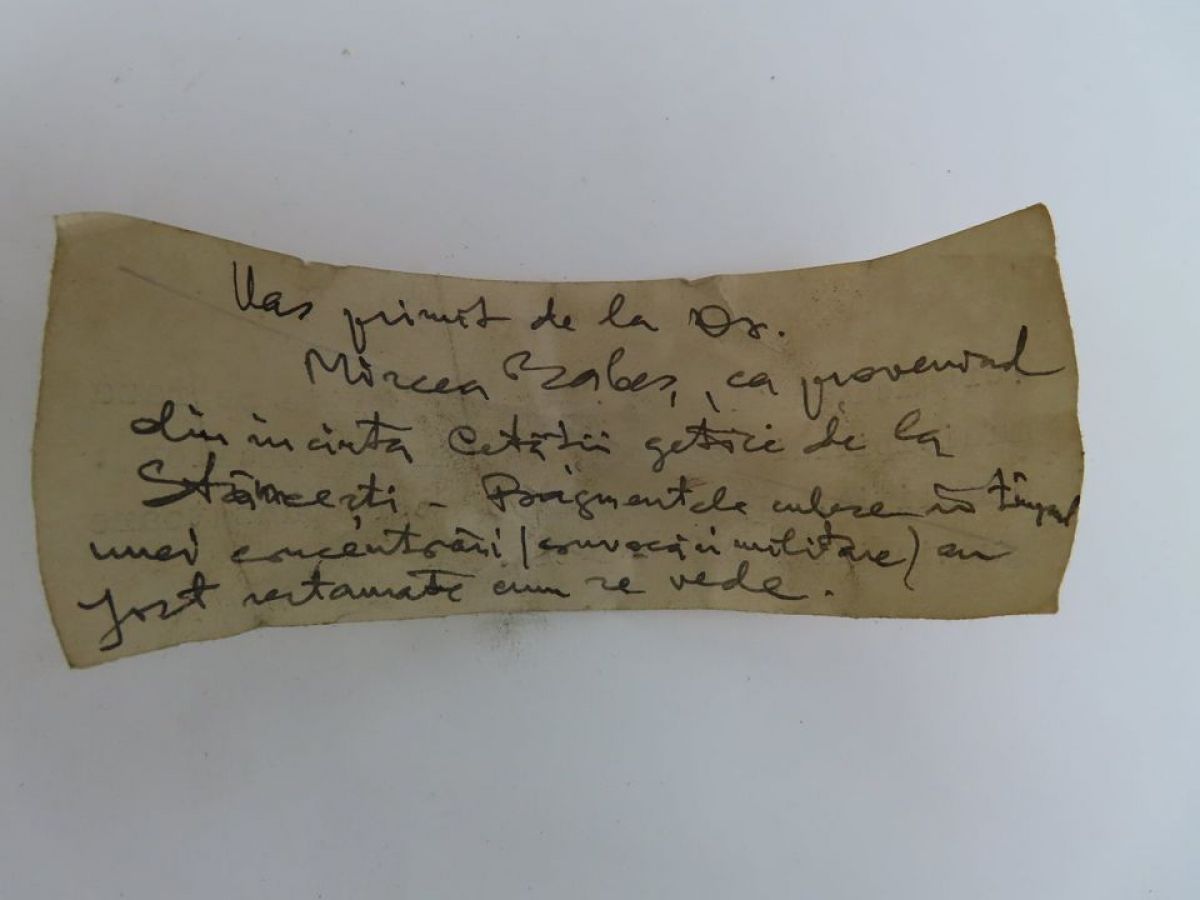 Vas primit de la Dr.
Mircea Babeș, ca provenind
din incinta Cetății getice de la
Stâncești - Fragmentele culese în timpul
unei concentrări (convocări militare) au
fost restaurate cum se vede.